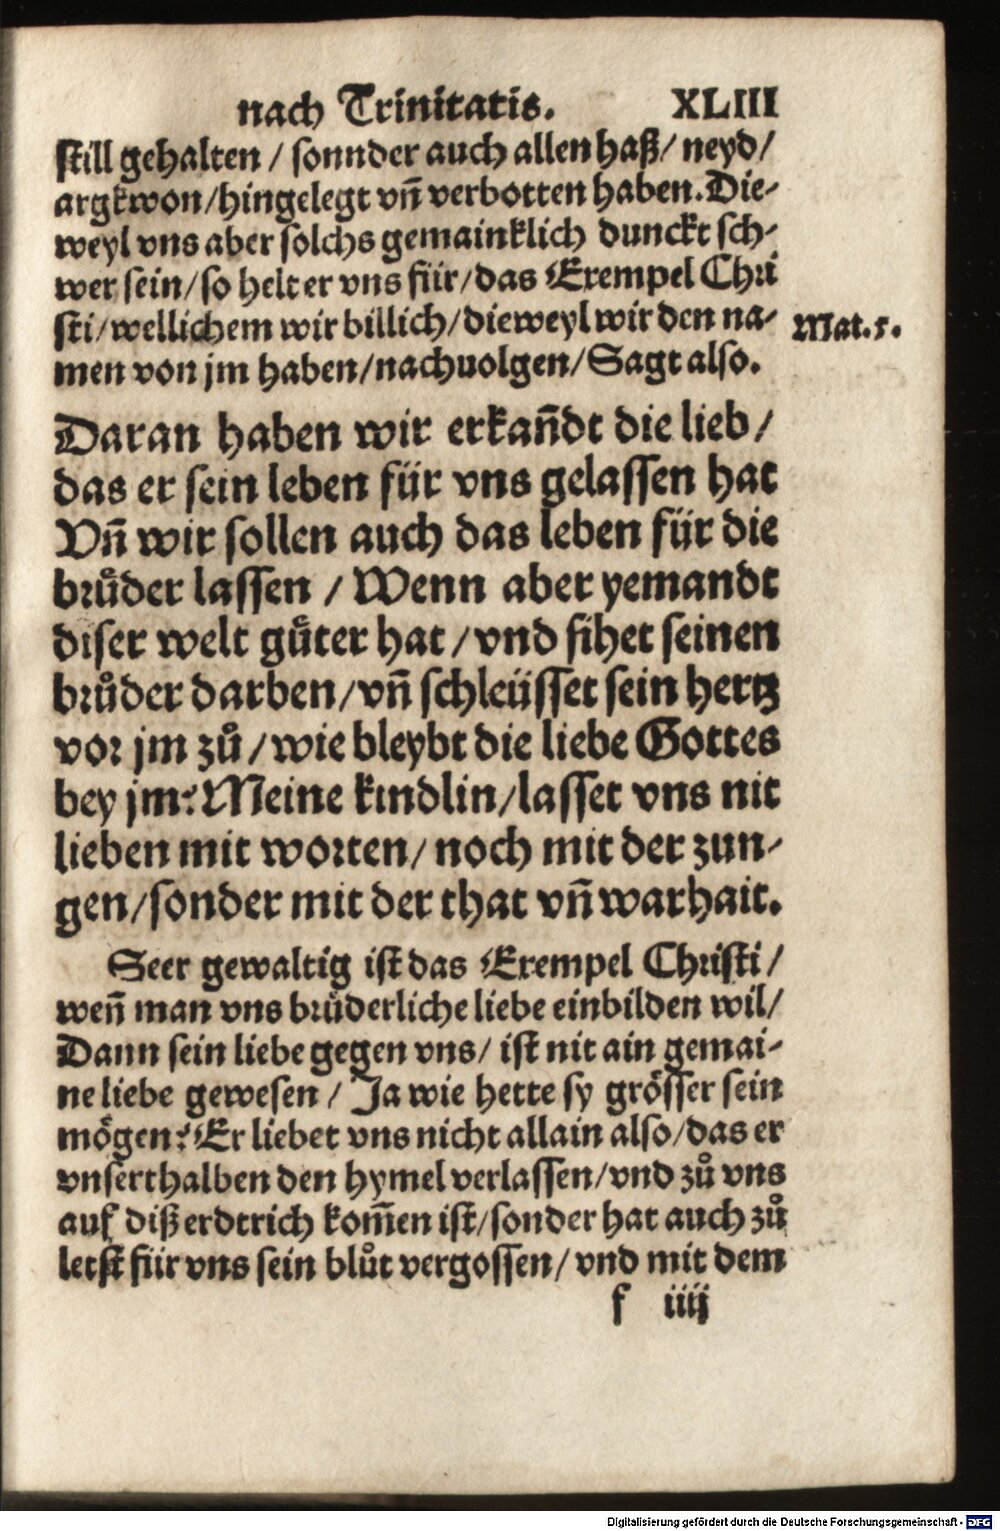 nach Trinitatis. XLIII
still gehalten / sonnder auch allen haß / neyd /
argkwon / hingelegt vñ verbotten haben. Die-
weyl vns aber solchs gemainklich dunckt sch-
wer sein / so helt er vns für / das Exempel Chri
sti / wellichem wir billich / dieweyl wir den na-
Mat. 5.
men von jm haben / nachuolgen / Sagt also.
Daran haben wir erkañdt die lieb /
das er sein leben für vns gelassen hat
Vñ wir sollen auch das leben für die
brůder lassen / Wenn aber yemandt
diser welt gůter hat / vnd sihet seinen
brůder darben / vñ schleüsset sein hertz
vor jm zů / wie bleybt die liebe Gottes
bey jm? Meine kindlin / lasset vns nit
lieben mit worten / noch mit der zun-
gen / sonder mit der that vñ warhait.
Seer gewaltig ist das Exempel Christi /
weñ man vns brůderliche liebe einbilden wil /
Dann sein liebe gegen vns / ist nit ain gemai-
ne liebe gewesen / Ja wie hette sy grösser sein
mögen? Er liebet vns nicht allain also / das er
vnserthalben den hymel verlassen / vnd zů vns
auf diß erdtrich kom̄en ist / sonder hat auch zů
letst für vns sein blůt vergossen / vnd mit dem
f iiij
Digitalisierung gefördert durch die Deutsche Forschungsgemeinschaft - DFG